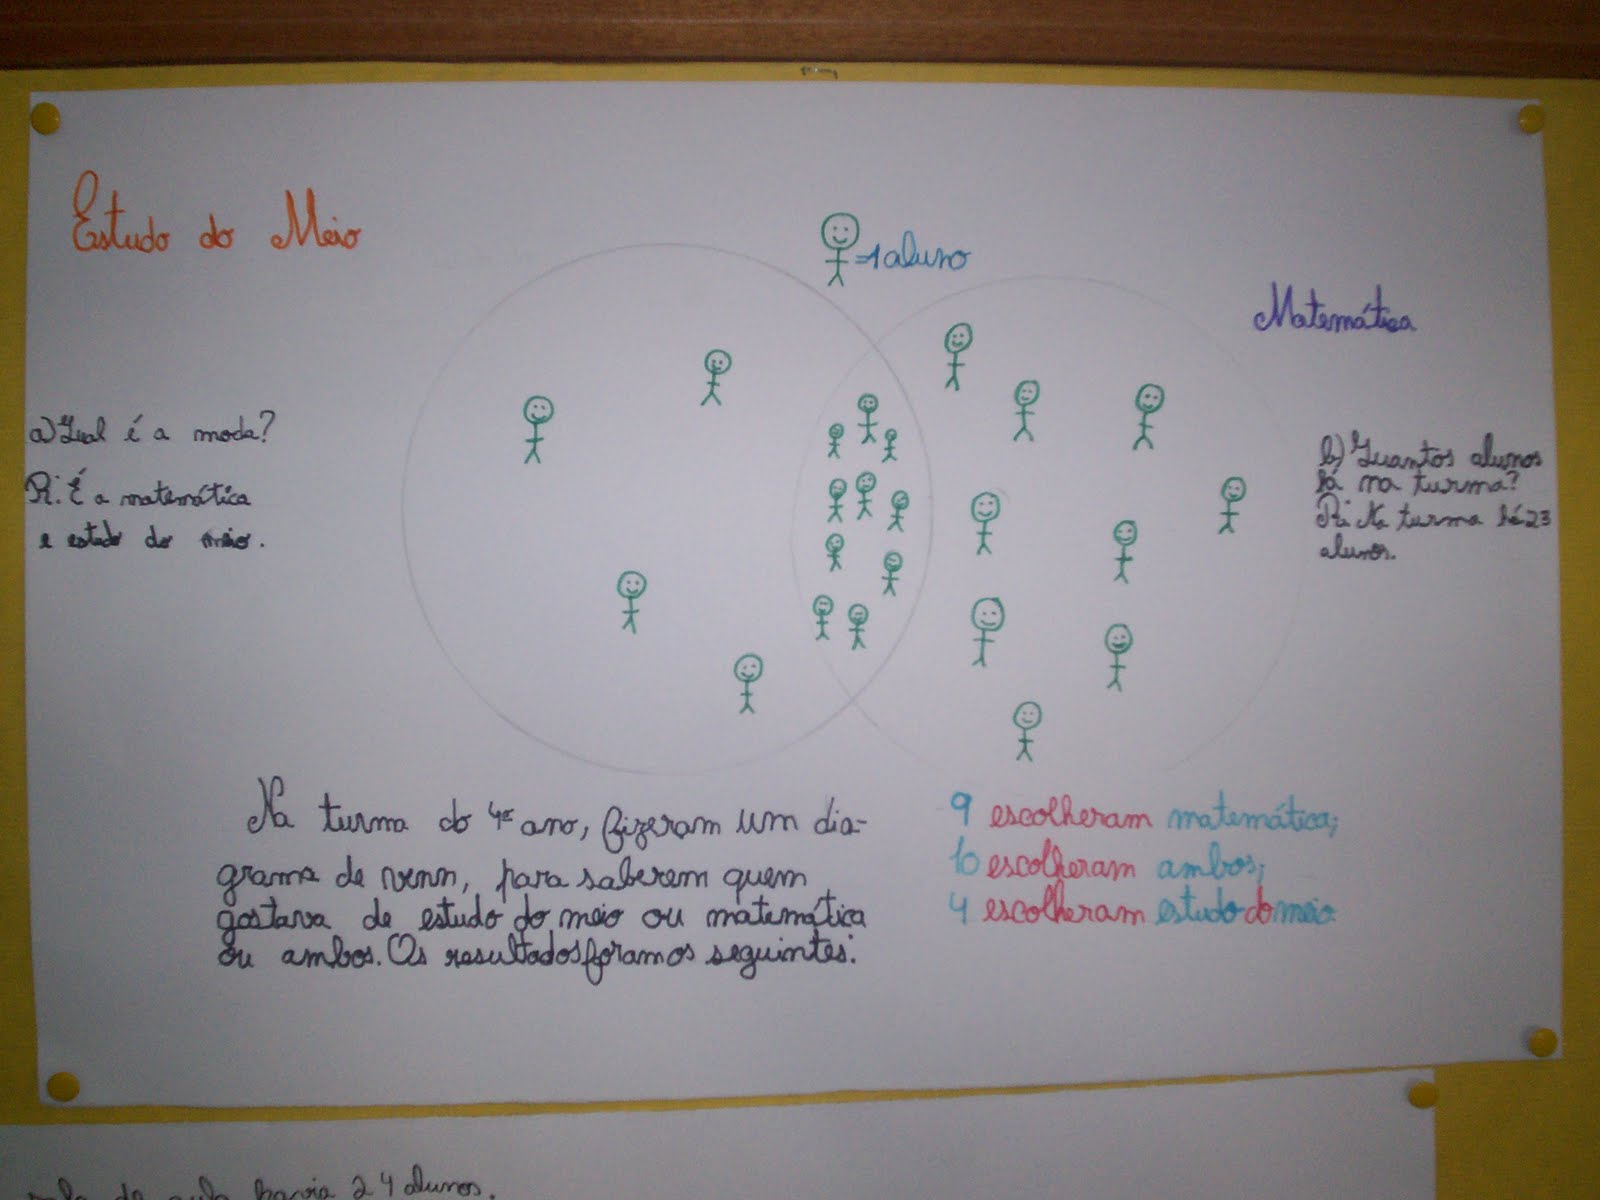 Estudo do Meio
=1 aluno
Matemática
a) Qual é a moda?
R: É a matemática
e estudo do meio.
b) Quantos alunos
há na turma?
R: Na turma há 23
alunos.
Na turma do 4º ano, fizeram um dia-
grama de venn, para saberem quem
gostava de estudo do meio ou matemática
ou ambos. Os resultados foram os seguintes:
9 escolheram matemática;
10 escolheram ambos;
4 escolheram estudo do meio.
de aula havia 24 alunos.